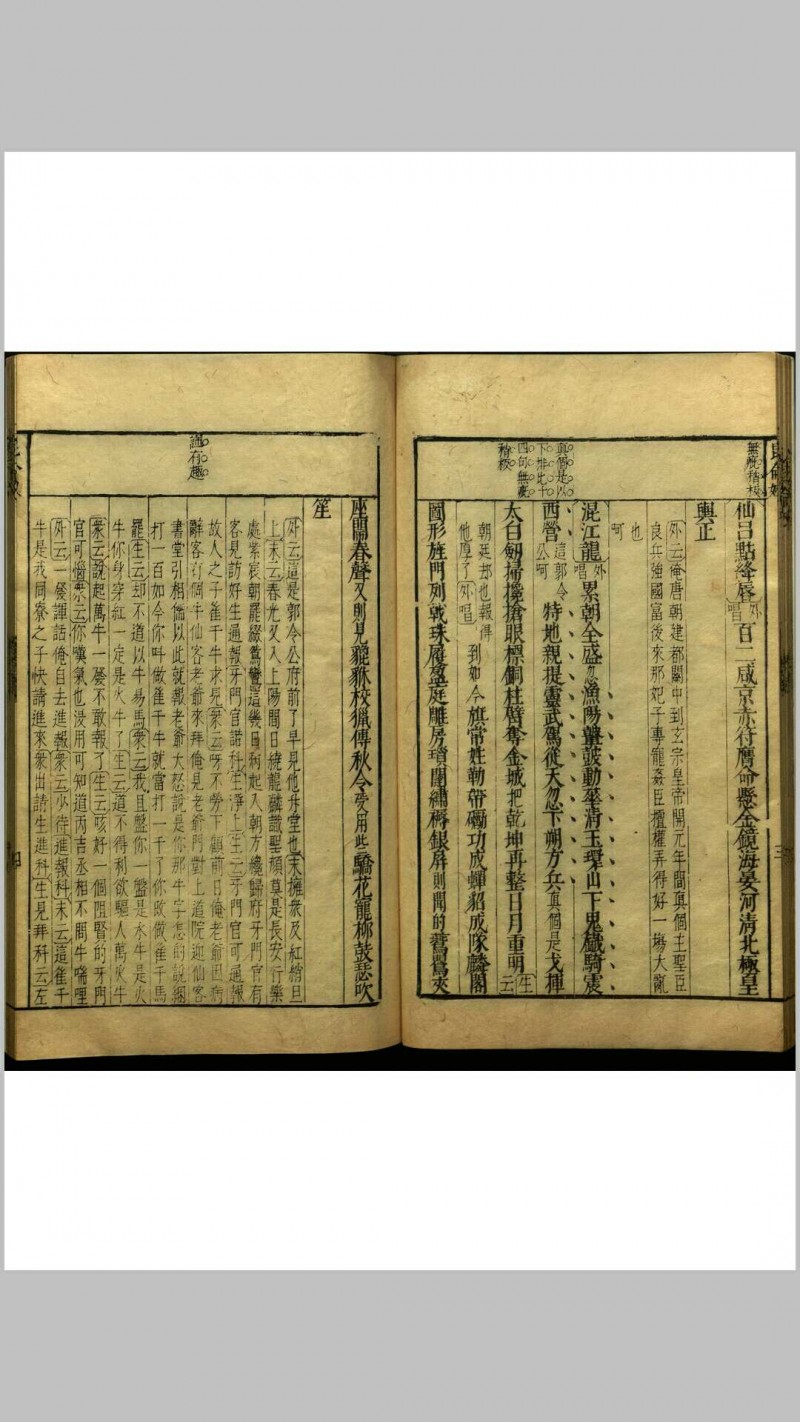 無疵稽核
仙呂點絳唇外唱百二咸京赤符膺命懸金鏡海晏河清北極皇
輿正
外云俺唐朝建都關中到玄宗皇帝開元年間真個主聖臣
良兵強國富後來那妃子專寵姦臣擅權弄得好一場大亂
也
呵
真個是以
下排比十
四句無疵
稽核
混江龍外唱累朝全盛忽漁陽鼙鼓動華清玉環山下鬼鐵騎震
西營這郭令公呵特地親提靈武駕從天忽下朔方兵真個是戈揮
太白劍掃攙搶眼標銅柱臂奪金城把乾坤再整日月重明生云
朝廷却也報得
他厚了外唱到如今旗常姓勒帶礪功成蟬貂成隊麟閣
圖形旌門列戟珠履盈庭雕房瑣闥繡褥銀屏則聞的鴛鴦夾
三
溫有趣
座閙春聲又則見貔貅校獵傳秋令受用些驕花寵柳鼓瑟吹
笙
外云這是郭令公府前了早見他升堂也末擁衆及紅綃旦
上末云春光又入上陽間日繞龍鱗識聖顏莫是長安行樂
處紫宸朝罷綴鴛鸞這幾日病起入朝方纔歸府牙門官有
客見訪好生通報牙門官諾科生淨上生云牙門官可通報
故人之子崔千牛求見衆云呀不勞下顧前日俺老爺因病
辭客有個半仙客老爺來拜俺見老爺門對上道院迎仙客
書堂引相儒以此就報老爺大怒說是你那牛字怎的說綑
打一百如今你叫做崔千牛就當打一千了你改做崔千馬
罷生云却不道以牛易馬衆云我且盤你一盤是水牛是火
牛你身穿紅一定是火牛了生云道不得利欲驅人萬火牛
衆云說起萬牛一發不敢報了生云咳好一個阻賢的牙門
官可惱衆云你嘆氣也没用可知道丙吉丞相不問牛喘哩
外云一發諢話俺自去進報衆云少待進報科末云這崔千
牛是我同寮之子快請進來衆出請生進科生見拜科云左
四